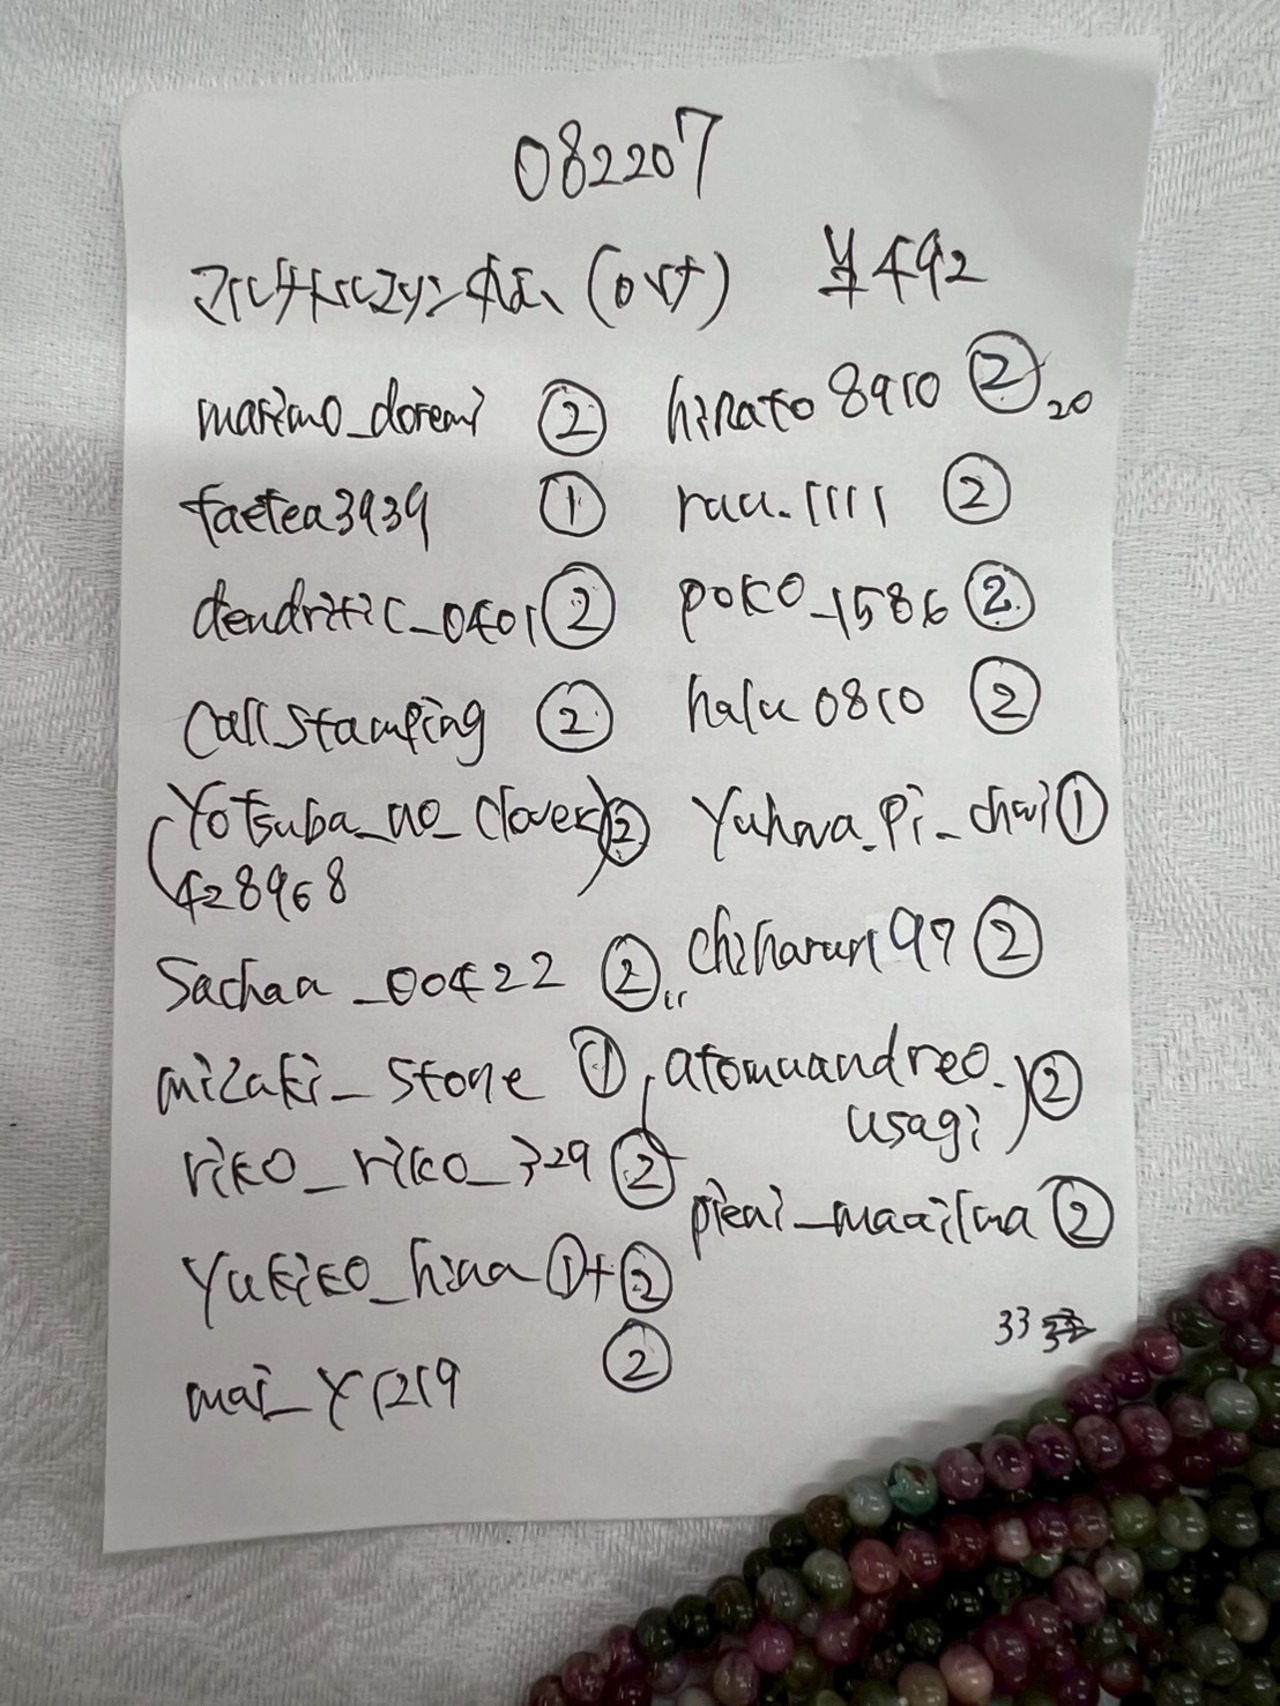 082207
マルチトルマリン ¥492
marimo_doremi ②
faetea3939 ①
dendritic_0401 ②
Callstamping ②
(Yotsuba_no_clover ②
428968)
Sachaa_00422 ② 11
mizaki_stone ①
riko_riko_329 ②
Yukiko_hina ①+②
mai_Y1219 ②
hirato8910 ② 20
ruu.1111 ②
poko_1586 ②
halu0810 ②
Yuhna.pi_chui ①
chiharun97 ②
(atomuandreo.
usagi) ②
pieni_maailma ②
33